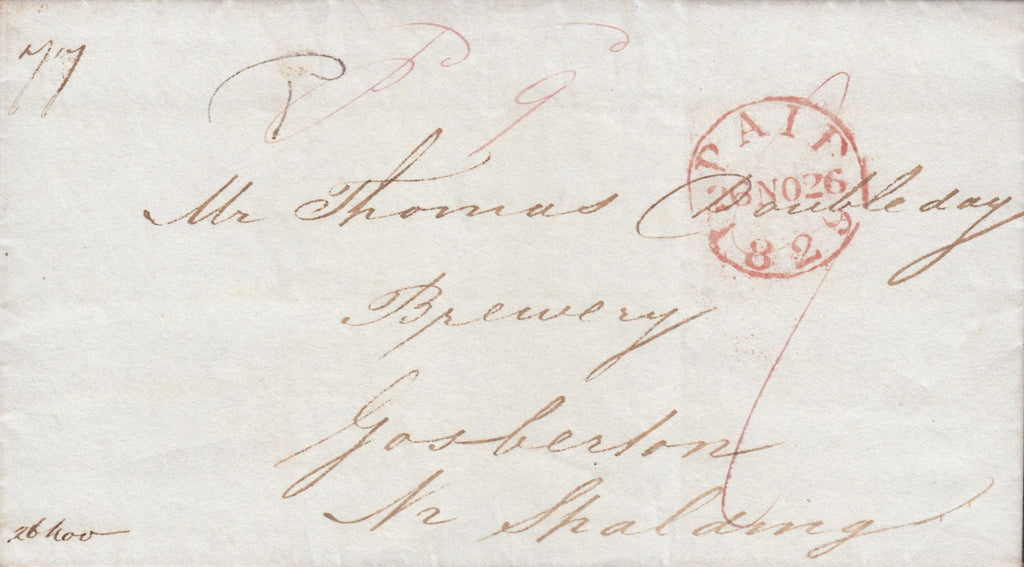 P 9
PAID
26NO26
1828
Mr Thomas Doubleday
Brewery
Gosberton
Nr Spalding
26 Nov